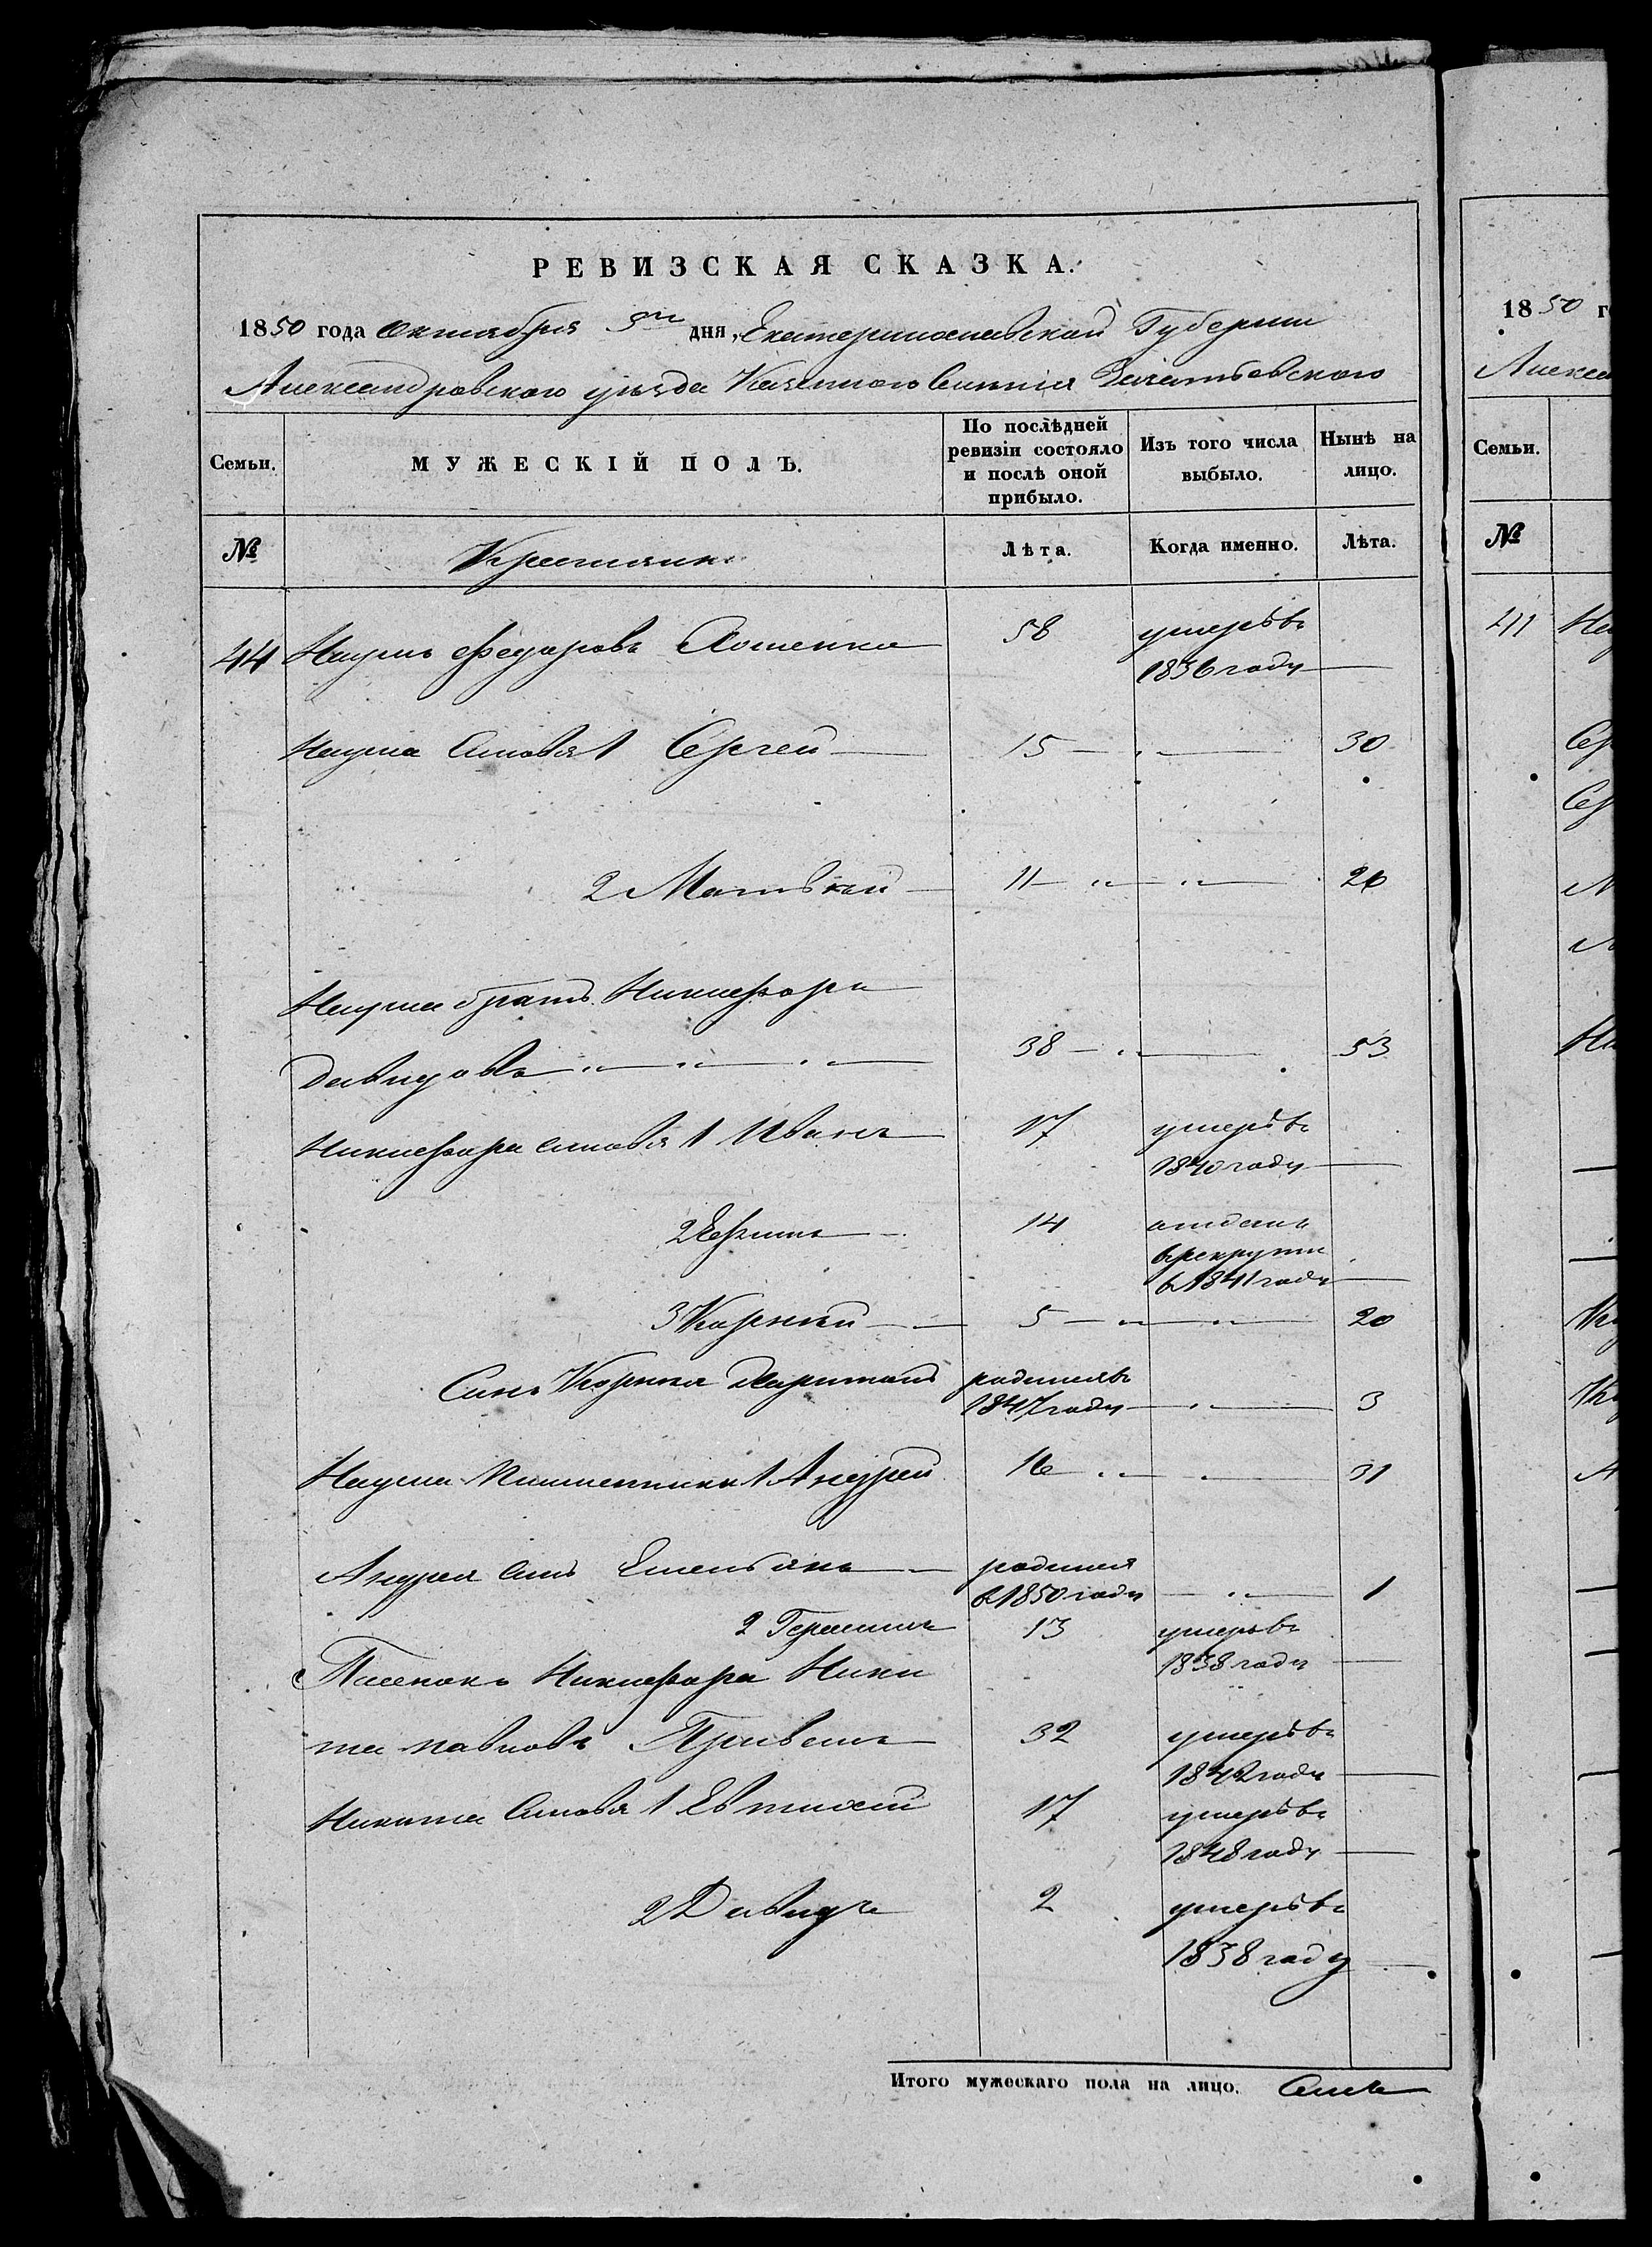 РЕВИЗСКАЯ СКАЗКА.
1850 года октября 5го дня, Екатеринославской Губернии
Александровского уезда Казенного Селения
Семьи.
МУЖЕСКІЙ ПОЛЪ.
По послѣдней ревизіи состояло и послѣ оной прибыло.
Изъ того числа выбыло.
Нынѣ на лицо.
№
Крестяни
Лѣта.
Когда именно.
Лѣта.
44 Наумъ Федоровъ 58 умеръ въ
1836 году
Наума Синовя 1 Сергей 15 30
2 Матвѣй 11 26
Наума братъ Никифоръ
Давидовъ 38 53
Никифора синовя 1 Иванъ 17 умеръ въ
1840 году
2 Ефимъ 14 отданъ
в рекруты
в 1841 году
3 Корнѣй 5 20
Синъ Корнея Харитонъ родился въ
1847 году 3
Наума племенники 1 Андрей 16 31
Андрея синъ Емельянъ родился
в 1850 году 1
2 Герасимъ 13 умеръ въ
1838 году
Пасенокъ Никифора Ники
та Павловъ 32 умеръ въ
1842 году
Никита Синовя 1 Евтихей 17 умеръ въ
1848 году
2 Давидъ 2 умеръ въ
1838 году
Итого мужескаго пола на лицо.
1850 г
Алекса
Семьи.
№
411
Сер
Сер